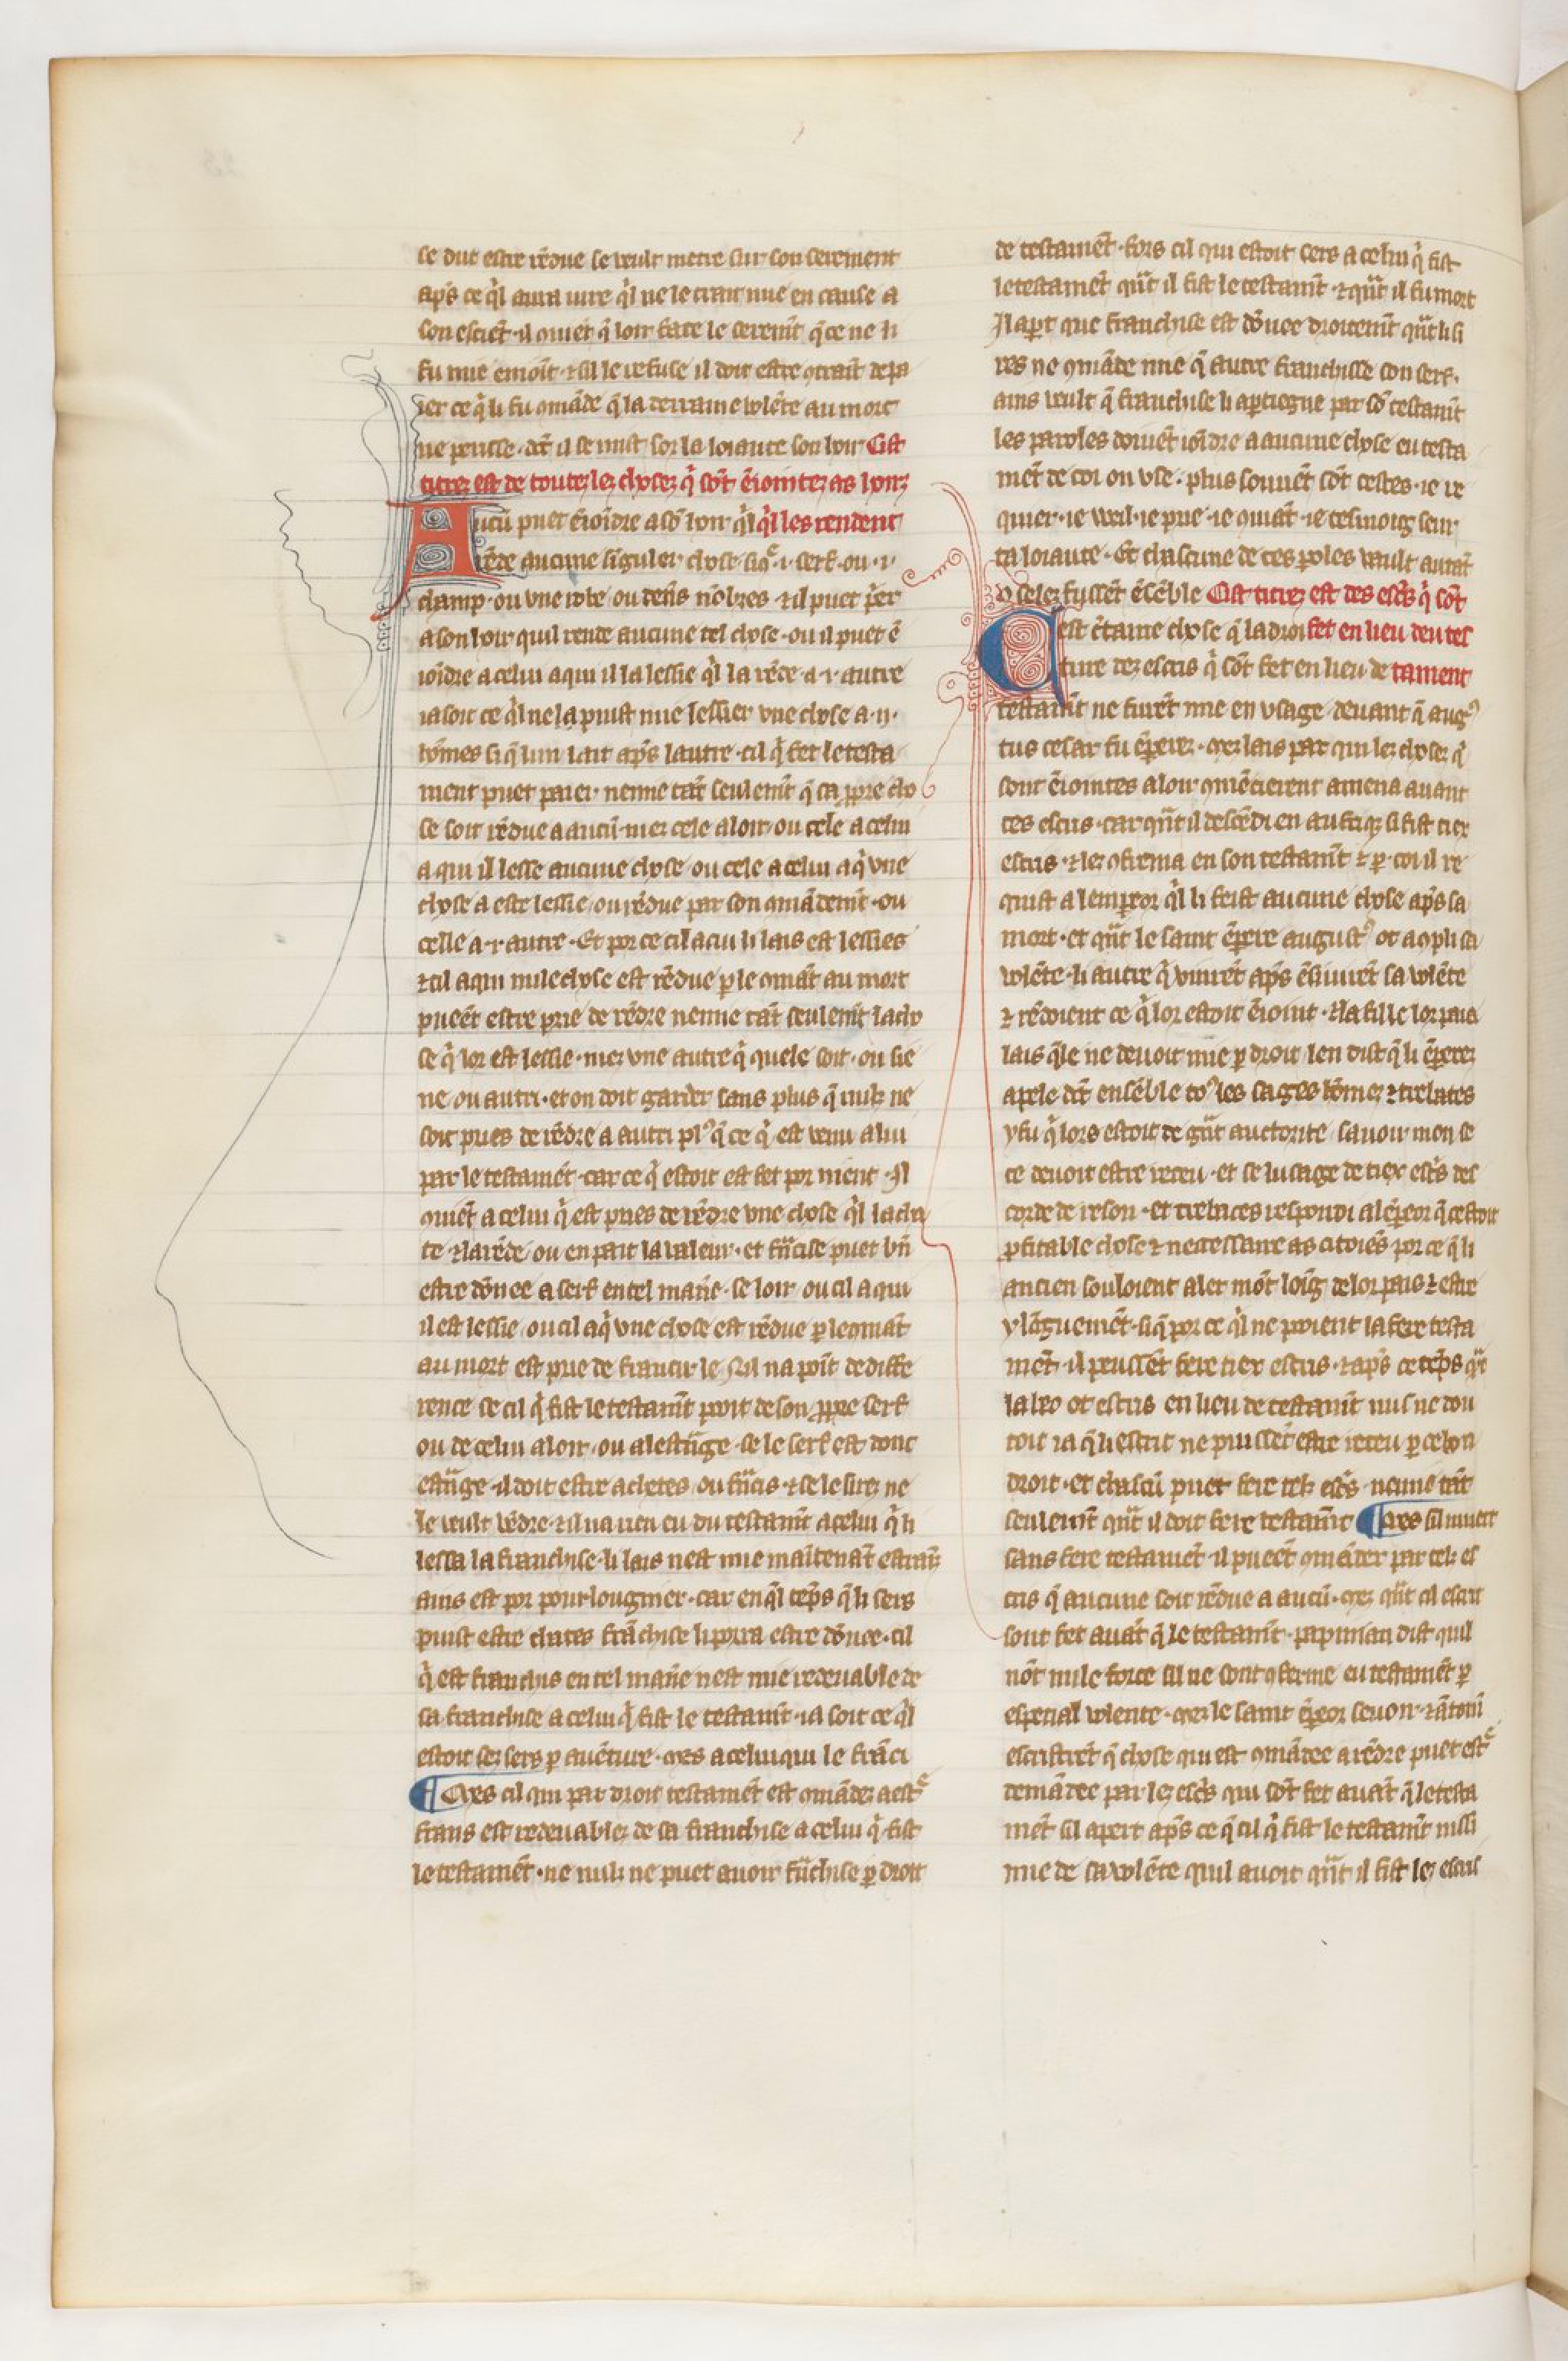 se dut estre rẽdue se veult metre sur son serement
ap̃s ce q̃l aura iure q̃l ne le trait mie en cause a
son esciẽt · il ꝯuiẽt q̃ loir face le seremt̃ q̃ ce ne li
fu mie enioĩt · ⁊ sil le refuse il doit estre ꝯtrait de pa
ier ce q̃ li fu ꝯmãde q̃ la derraine volẽte au mort
ne perisse · dt̃ il se mist sor la loiaute son loir Cist
titrez est de toutez lez chosez q̃ sõt ẽiointez as loirz
Aucũ puet ẽioĩdre a sõ loir q̃l q̃l les rendent
rẽde aucune sĩguler chose · sicᵉ · i · serf · ou · i ·
champ · ou vne robe · ou deñs nõbres · ⁊ il puet p̃er
a son loir quil rende aucune tel chose · ou il puet ẽ
ioĩdre a celui a qui il la lessie q̃l la rẽde · a · i · autre
ia soit ce q̃l ne la puist mie lessier vne chose a · ii ·
hõmes si q̃ lun lait ap̃s lautre · cil q̃ fet le testa
ment puet paier nemie tãt seulemt̃ q̃ sa ꝓpre cho
se soit rẽdue a aucũ · mez cele a loir / ou cele a celui
a qui il lesse aucune chose · ou cele a celui a q̃ vne
chose a este lessie / ou rẽdue par son ꝯmãdemt̃ · ou
celle a · i · autre · Et por ce cil a cui li lais est lessies
⁊ cil a qui nule chose est rẽdue ꝑ le ꝯmãt au mort
pueẽt estre prie de rẽdre nemie tãt seulemt̃ la cho
se q̃ lor est lessie · mez vne autre q̃ quele soit · ou sie
ne ou autri · et on doit garder sans plus q̃ nulz ne
soit pries de rẽdre a autri plꝰ q̃ ce q̃ est venu a lui
par le testamẽt · car ce q̃ estoit est fet por nient · Il
ꝯuiẽt a celui q̃ est pries de rẽdre vne chose q̃l lacha
te ⁊ la rẽde / ou en pait la valeur · et frãchise puet bñ
estre dõnee a serf en tel mañe · se loir · ou cil a qui
il est lessie / ou cil a q̃ vne chose est rẽdue ꝑ le ꝯmãt
au mort est prie de francir le Nil na poĩt de diffe
rence se cil q̃ fist le testamt̃ proit de son ꝓpre serf
ou de celui a loir / ou a lestãge · se le serf est donc
estãge · il doit estre achetes / ou frãcis · ⁊ se le sirez ne
le veult vẽdre · ⁊ sil na rien eu du testamt̃ a celui q̃ li
lessa la franchise · li lais nest mie maĩtenãt estraiz
ains est por pourlougnier · car en q̃l tẽps q̃ li sers
puist estre chates frãchise li porra estre dõnee · cil
q̃ est franchis en tel mañe nest mie redeuable de
sa franchise a celui q̃ fist le testamt̃ · ia soit ce q̃l
estoit sez sers ꝑ auẽture · mes a celui qui le frãci
¶ Mes cil qui par droit testamẽt est ꝯmãdez a estᵉ
frans est redeuablez de sa franchise a celui q̃ fist
le testamẽt · ne nulz ne puet auoir frãchise ꝑ droit
de testamẽt · fors cil qui estoit sers a celui q̃ fist
le testamẽt qãt il fist le testamt̃ · ⁊ qãt il fu mort
Il apt̃ que franchise est dõnee droitemt̃ qãt li si
res ne ꝯmãde mie q̃ autre franchisse son serf ·
ains veult q̃ franchise li aptiegne par sõ testamt̃
les paroles doiuẽt ioĩdre a aucune chose eu testa
mẽt de coi on vse · plus souuẽt sõt cestes · ie re
quier · ie weil · ie prie · ie ꝯmãt · ie tesmoig seur
ta loiaute · Et chascune de ces ꝑoles vault autãt
ꝯ selez fussẽt ẽsẽble Cist titrez est des escⁱs q̃ sõt
Cest c̃taine chose q̃ la droi fet en lieu deu tes
ture dez escris q̃ sõt fet en lieu de tament
testamt̃ ne furẽt mie en vsage deuant q̃ augꝰ
tus cesar fu ẽperez · mez lais par qui lez chosez q̃
sont ẽiointes a loir ꝯmẽcierent amena auant
ces escris · car qãt il descẽdi en aufriq̃ si fist tiex
escris · ⁊ lez ꝯferma en son testamt̃ ⁊ ꝑ · coi il re
quist a lempeor q̃l li feist aucune chose ap̃s sa
mort · et qãt le saint ẽpere augustꝰ ot aꝯpli sa
volẽte · li autre q̃ vinrẽt ap̃s ẽsiuirẽt sa volẽte
⁊ rẽdoient ce q̃ lor estoit ẽioint · ⁊ la fille lor paia
lais q̃le ne deuoit mie ꝑ droit · len dist q̃ li ẽperez
apele dt̃ ensẽble toꝰ les sages hõmez ⁊ trebates
y fu q̃ lors estoit de gãt auctorite / sauoir mon se
ce deuoit estre receu · et se lusage de tiex escⁱs des
corde de reson · et trebaces respondi a lẽpeor q̃ cestoit
ꝓfitable chose ⁊ necessaire as citoiẽs por ce q̃ li
ancien souloient aler mõt loĩg de lor pais ⁊ estre
y lõguemẽt · si q̃ por ce q̃l ne poient la fere testa
mẽt · il peussẽt fere tiex escris · ⁊ ap̃s ce tẽps qãt
labeo ot escris en lieu de testamt̃ nus ne dou
toit ia q̃ li escrit ne puissẽt estre receu ꝑ ce bon
droit · et chascũ puet fere telz escⁱs nemie tãt
seulemt̃ qãt il doit fere testamt̃ ¶ Mes sil muert
sans fere testamẽt · il pueẽt ꝯmãder par telz es
cris q̃ aucune soit rẽdue a aucũ · mez qãt cil escrit
sont fet auãt q̃ le testamt̃ · papinian dist quil
nõt nule force sil ne sont ꝯferme eu testamẽt ꝑ
especial volente · mez le saint ẽpeor seuoir · ⁊ ãtoni
escristrẽt q̃ chose qui est ꝯmãdee a rẽdre puet estᵉ
demãdee par lez escⁱs qui sõt fet auãt q̃ le testa
mẽt sil apert ap̃s ce q̃ cil q̃ fist le testamt̃ nissi
mie de sa volẽte quil auoit qãt il fist lez escris